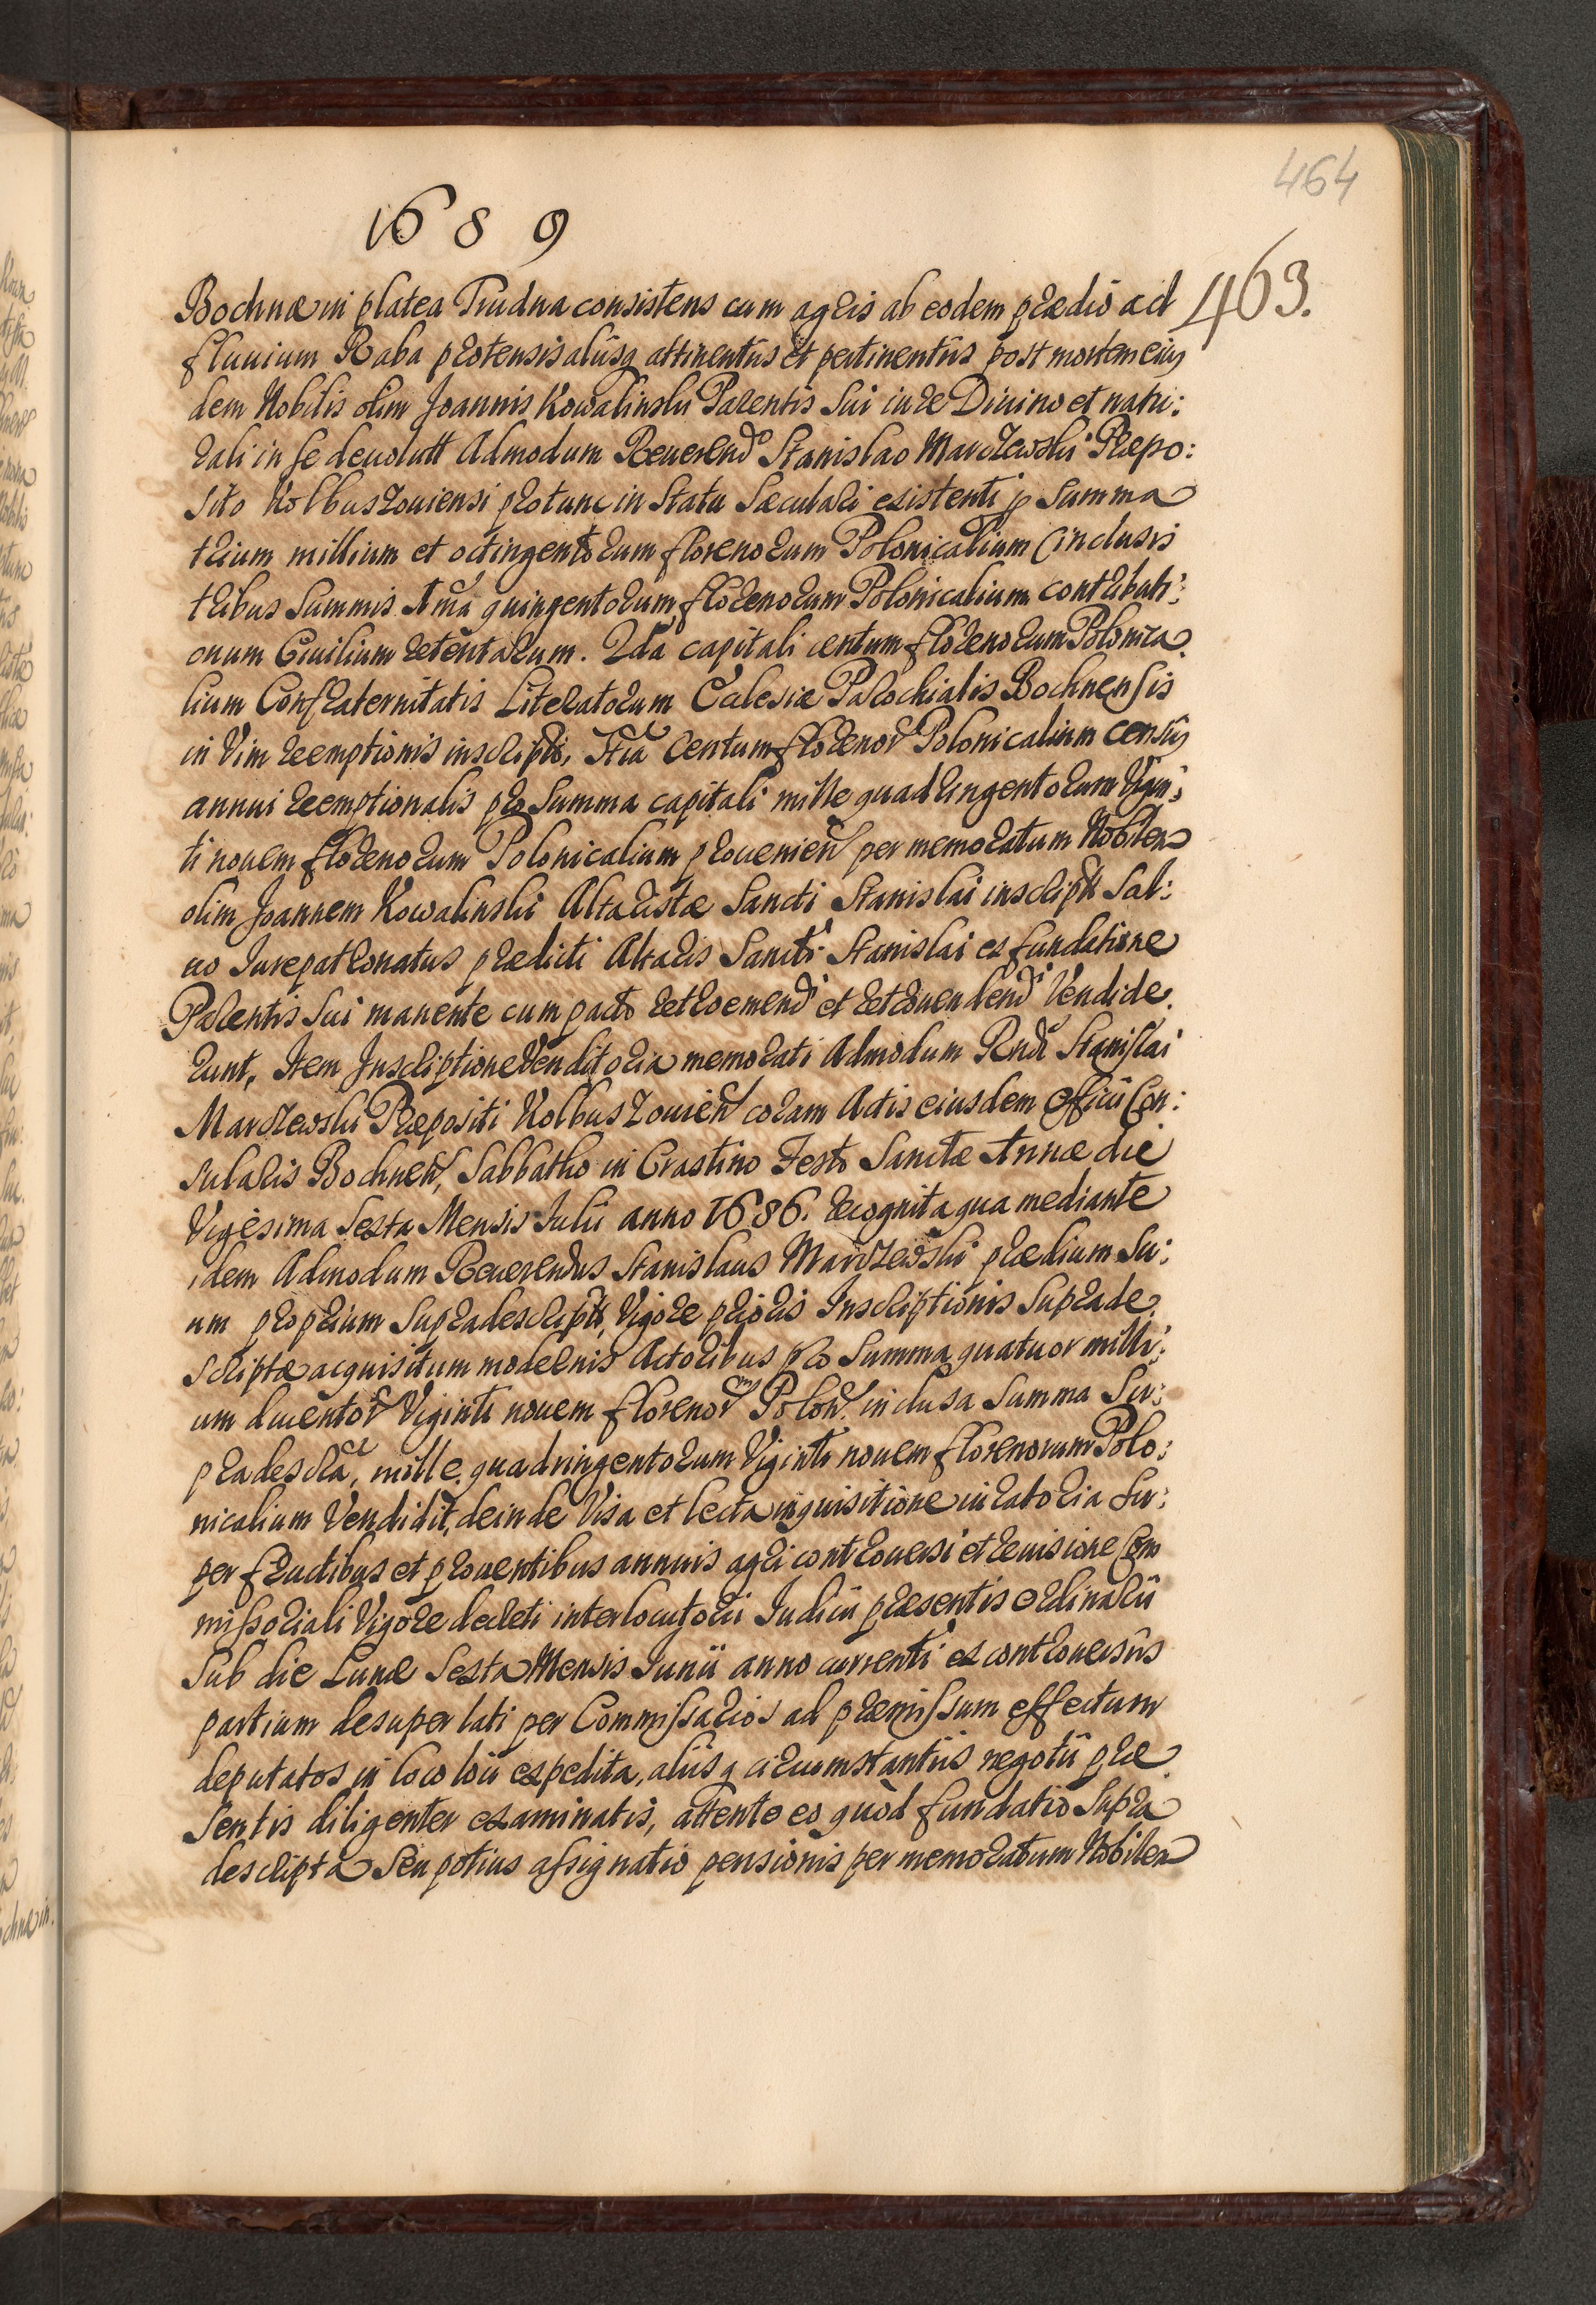 464
1689
463.
Bochnæ in platea Trudna consistens cum agris ab eodem prædio ad
fluuium Raba protensis aliisq attinentiis et pertinentiis post mortem eius
dem Nobilis olim Joannis Kowalinski Parentis Sui iure Diuino et natu:
rali in se deuolutt Admodum Reuerendo Stanislao Marszewski Præpo:
sito Kolbuszouiensi protunc in Statu Sæculari existenti p Summa
trium millium et octingentorum florenorum Polonicalium (inclusis
tribus Summis 1ma quingentorum florenorum Polonicalium contributi:
onum Ciuilium retentarum. 2da capitali centum florenorum Polonica
lium Confraternitatis Literatorum Ecclesiæ Parochialis Bochnensis
in Vim reemptionis inscripto, 3tia Centum florenor Polonicalium census
annui reemptionalis pro Summa capitali mille quadringentorum Vigin:
ti nouem florenorum Polonicalium prouenien per memoratum Nobilem
olim Joannem Kowalinski Altaristæ Sancti Stanislai inscriptt Sal:
uo Iurepatronatus prædicti Altaris Sancti Stanislai ex fundatione
Parentis Sui manente cum pacto retroemendi et retrouendendi Vendide
runt, Item Inscriptione Venditoria memorati Admodum Rndi Stanislai
Marszewski Præpositi Kolbuszouien coram Actis eiusdem Officii Con:
sularis Bochnen, Sabbatho in Crastino Festo Sanctæ Annæ die
Vigesima Sexta Mensis Iulii anno 1686. recognita qua mediante
idem Admodum Reuerendus Stanislaus Marszewski prædium Su:
um proprium Supradescriptt, Vigore prioris Inscriptionis Suprade
scriptæ acquisitum modernis Actoribus pro Summa quatuor milli:
um ducentor Viginti nouem florenorum Polon. inclusa Summa Su:
pradescra, mille quadringentorum Viginti nouem florenorum Polo:
nicalium Vendidit, deinde Visa et lecta inquisitione iuratoria Su:
per fructibus et prouentibus annuis agri controuersi et reuisione Com
missoriali Vigore decreti interlocutorii Iudicii præsentis ordinarii
Sub die Lunæ Sexta Mensis Iunii anno currenti ex controuersiis
partium desuper lati per Commissarios ad præmissum effectum
deputatos in loco loci expedita, aliisq circumstantiis negotii præ
sentis diligenter examinatis, attento eo quòd fundatio Supra
descripta Seu potius assignatio pensionis per memoratum Nobilem